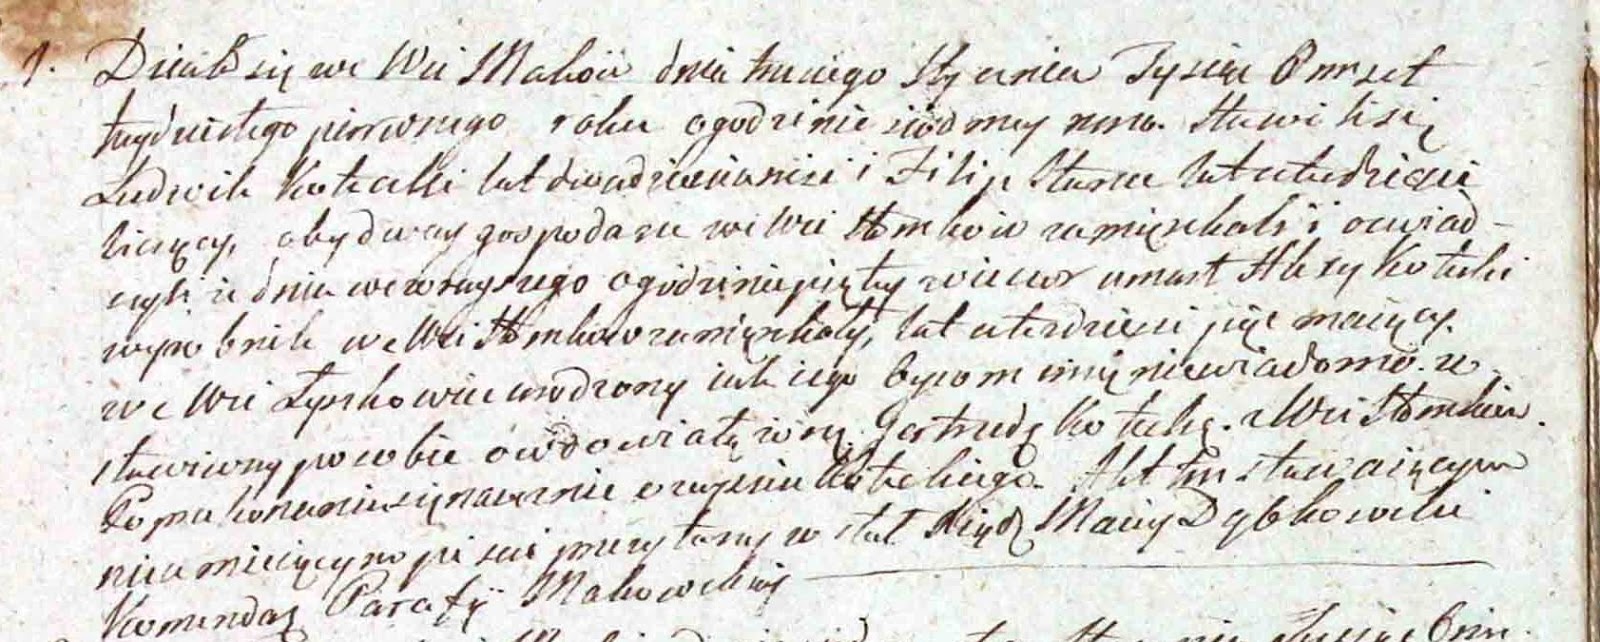 1. Działo się we Wsi Makow dnia trzeciego Stycznia Tysiąc Ośmset
trzydziestego pierwszego roku ogodzinie siodmey rano. Stawili się
Ludwik Kotecki lat dwadzieścia i Filip Starze lat czterdzieści
liczący, obydway gospodarze we Wsi Słomkow zamięszkali i oswiad-
czyli iż dnia wczorayszego ogodzinie piątey wieczor umarł Błażey Kotecki
wyrobnik we Wsi Słomkow zamięszkały, lat czterdzieści pięć maiący.
we Wsi Łyszkowice urodzony iak iego oycom imię niewiadomo. zo-
stawiwszy po sobie owdowiałą żonę Gertrudę Kotecką z Wsi Słomkow.
Po przekonaniu się naocznie o zeysciu Koteckiego. Akt ten stawaiącym
nieumieiącym pisać przeczytany został Xiądz Maciey Dębkowski
Komendarz Parafii Makowskiey